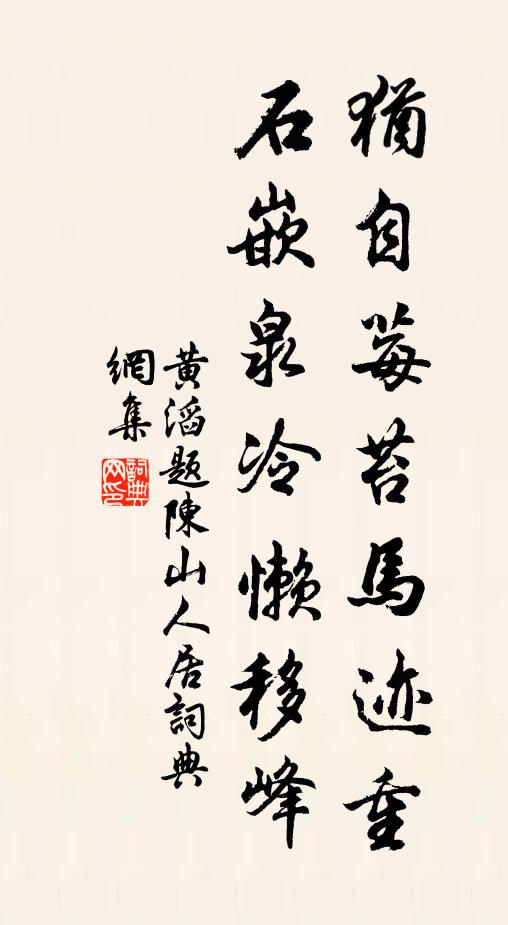 猶自莓苔馬迹重
石嵌泉冷懶移峰
黃滔題陳山人居詞典
網集
詞典
网印